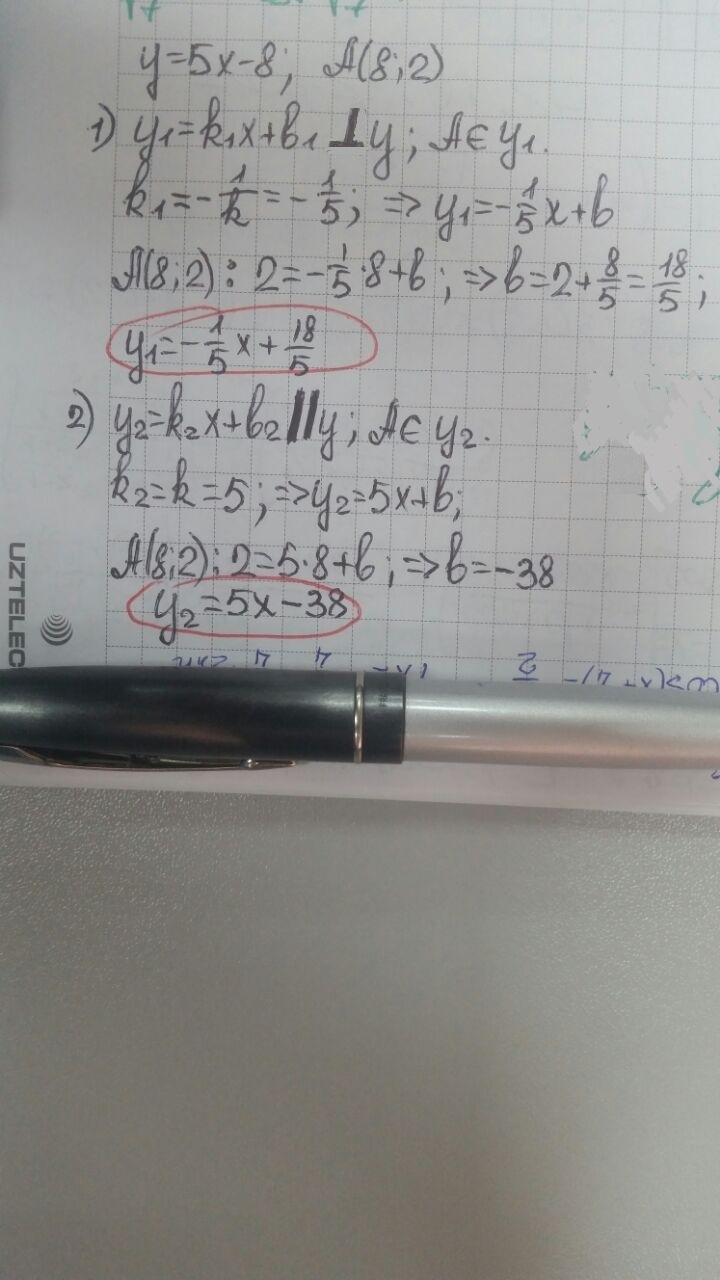 y=5x-8; A(8;2)
1) y₁=k₁x+b₁ ⊥ y; A∈y₁.
k₁=-1/k=-1/5; => y₁=-1/5x+b
A(8;2): 2=-1/5·8+b; => b=2+8/5=18/5;
y₁=-1/5x+18/5
2) y₂=k₂x+b₂ || y; A∈y₂.
k₂=k=5; => y₂=5x+b;
A(8;2): 2=5·8+b; => b=-38
y₂=5x-38
UZTELEC